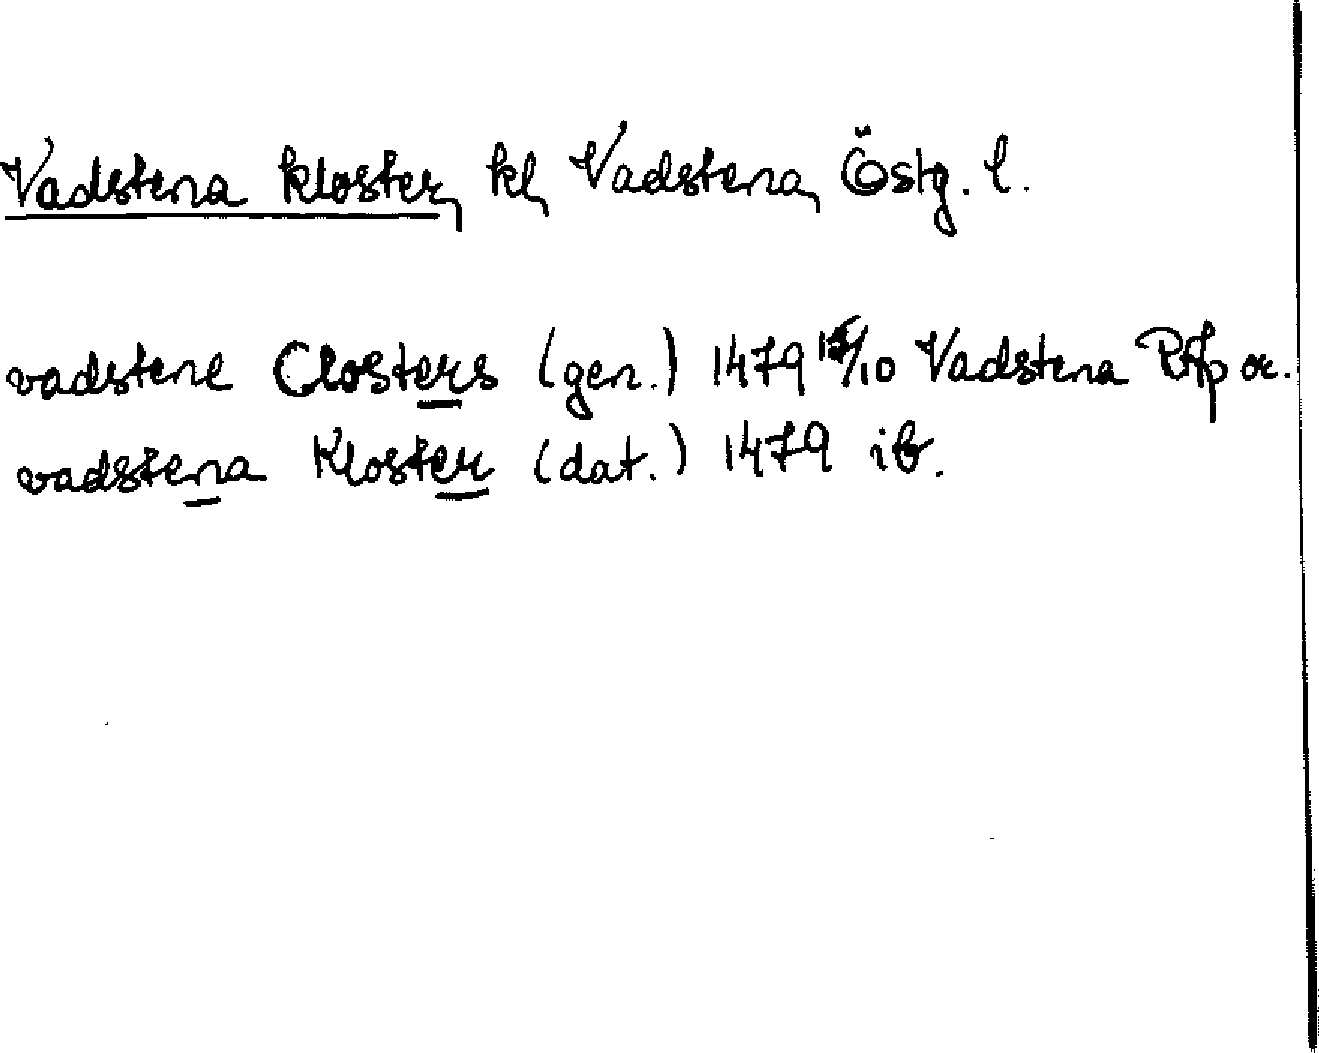 Vadstena kloster, kl, Vadstena, Östg. l.
vadstene Closters (gen.) 1479 /10 Vadstena RAp or.
vadstena Kloster (dat.) 1479 ib.